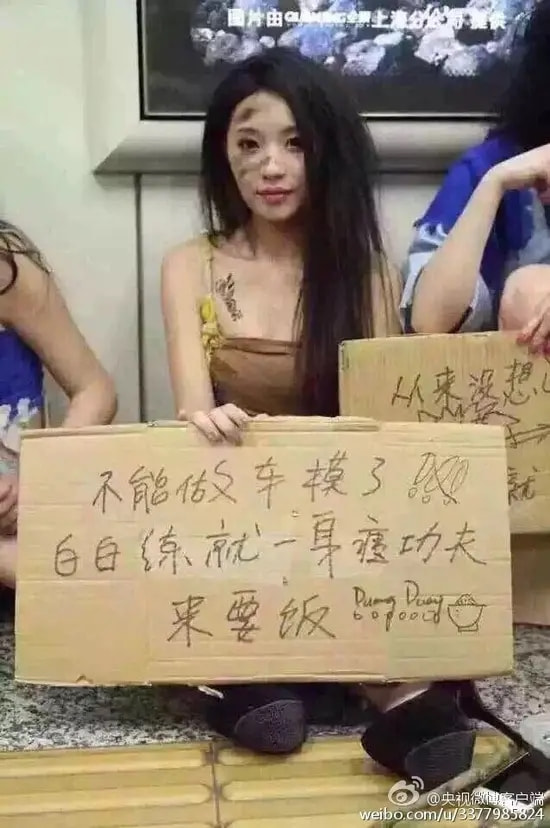 图片由
上海分公司 提供
不能做车模了!!!
白白练就一身瘦功夫
来要饭 Duang Duang
从来没想
就
@央视微博客户端
weibo.com/u/3377985824